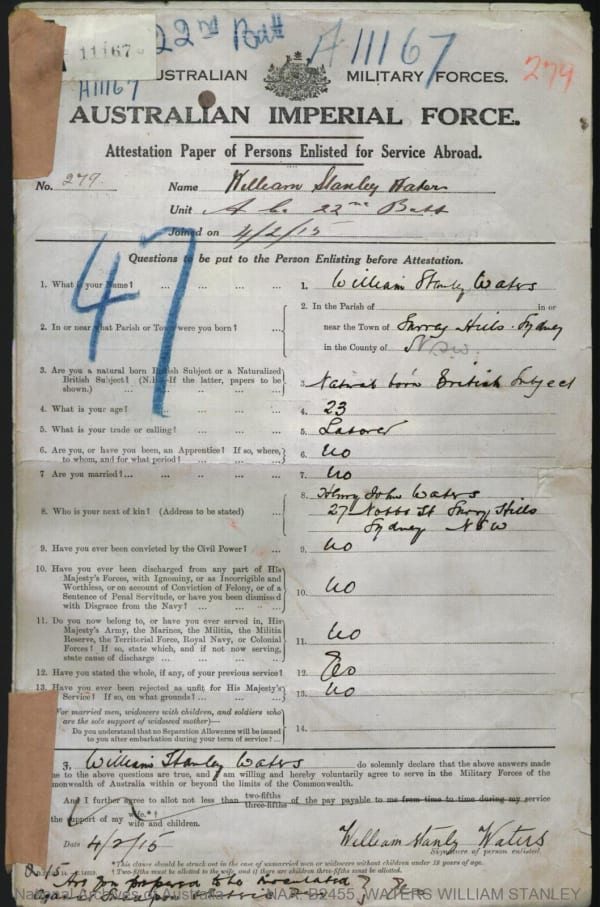 11167
22nd Batt
A11167
A11167
279
AUSTRALIAN MILITARY FORCES.
AUSTRALIAN IMPERIAL FORCE.
Attestation Paper of Persons Enlisted for Service Abroad.
No. 279. Name William Stanley Waters
Unit A Co. 22nd Batt
Joined on 4/2/15
47
Questions to be put to the Person Enlisting before Attestation.
1. What is your Name? ... ... ... ... 1. William Stanley Waters
2. In or near what Parish or Town were you born? ... 2. In the Parish of in or
near the Town of Surry Hills. Sydney
in the County of N.S.W.
3. Are you a natural born British Subject or a Naturalized
British Subject? (N.B.—If the latter, papers to be
shown.) ... ... ... ... 3. Natural born British Subject
4. What is your age? ... ... ... ... 4. 23
5. What is your trade or calling? ... ... ... 5. Laborer
6. Are you, or have you been, an Apprentice? If so, where,
to whom, and for what period? ... ... ... 6. No
7 Are you married?... ... ... ... ... 7. No
8. Who is your next of kin? (Address to be stated) ... 8. Henry John Waters
27 Nobbs St Surry Hills
Sydney NSW
9. Have you ever been convicted by the Civil Power? ... 9. No
10. Have you ever been discharged from any part of His
Majesty's Forces, with Ignominy, or as Incorrigible and
Worthless, or on account of Conviction of Felony, or of a
Sentence of Penal Servitude, or have you been dismissed
with Disgrace from the Navy? ... ... ... 10. No
11. Do you now belong to, or have you ever served in, His
Majesty's Army, the Marines, the Militia, the Militia
Reserve, the Territorial Force, Royal Navy, or Colonial
Forces? If so, state which, and if not now serving,
state cause of discharge ... ... ... ... 11. No
12. Have you stated the whole, if any, of your previous service? 12.
13. Have you ever been rejected as unfit for His Majesty's
Service? If so, on what grounds? ... ... ... 13. No
(For married men, widowers with children, and soldiers who
are the sole support of widowed mother)—
Do you understand that no Separation Allowance will be issued
to you after embarkation during your term of service? ... 14.
I, William Stanley Waters do solemnly declare that the above answers made
me to the above questions are true, and I am willing and hereby voluntarily agree to serve in the Military Forces of the
monwealth of Australia within or beyond the limits of the Commonwealth.
And I further agree to allot not less than two-fifths three-fifths of the pay payable to me from time to time during my service
the support of my wife.*† wife and children.
Date 4/2/15 William Stanly Waters
Signature of person enlisted.
*This clause should be struck out in the case of unmarried men or widowers without children under 18 years of age.
†Two-fifths must be allotted to the wife, and if there are children three-fifths must be allotted.
15 Are you prepared to be inoculated
National Archives of Australia NAA: B2455, WATERS WILLIAM STANLEY